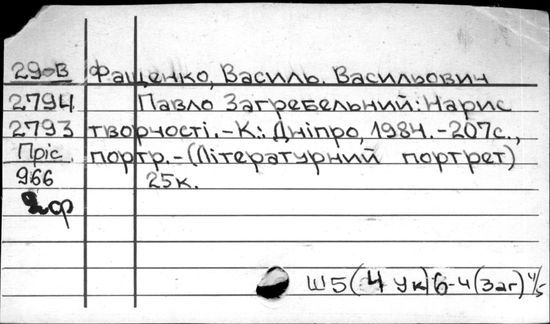 29-В Фащенко, Василь Васильович
2794 Павло Загребельний: Нарис
2793 творчості. - К.: Дніпро, 1984. - 207с.,
Пріс. портр. - (Літературний портрет)
966 25к.
Ш5(4Ук)6-4(Заг)